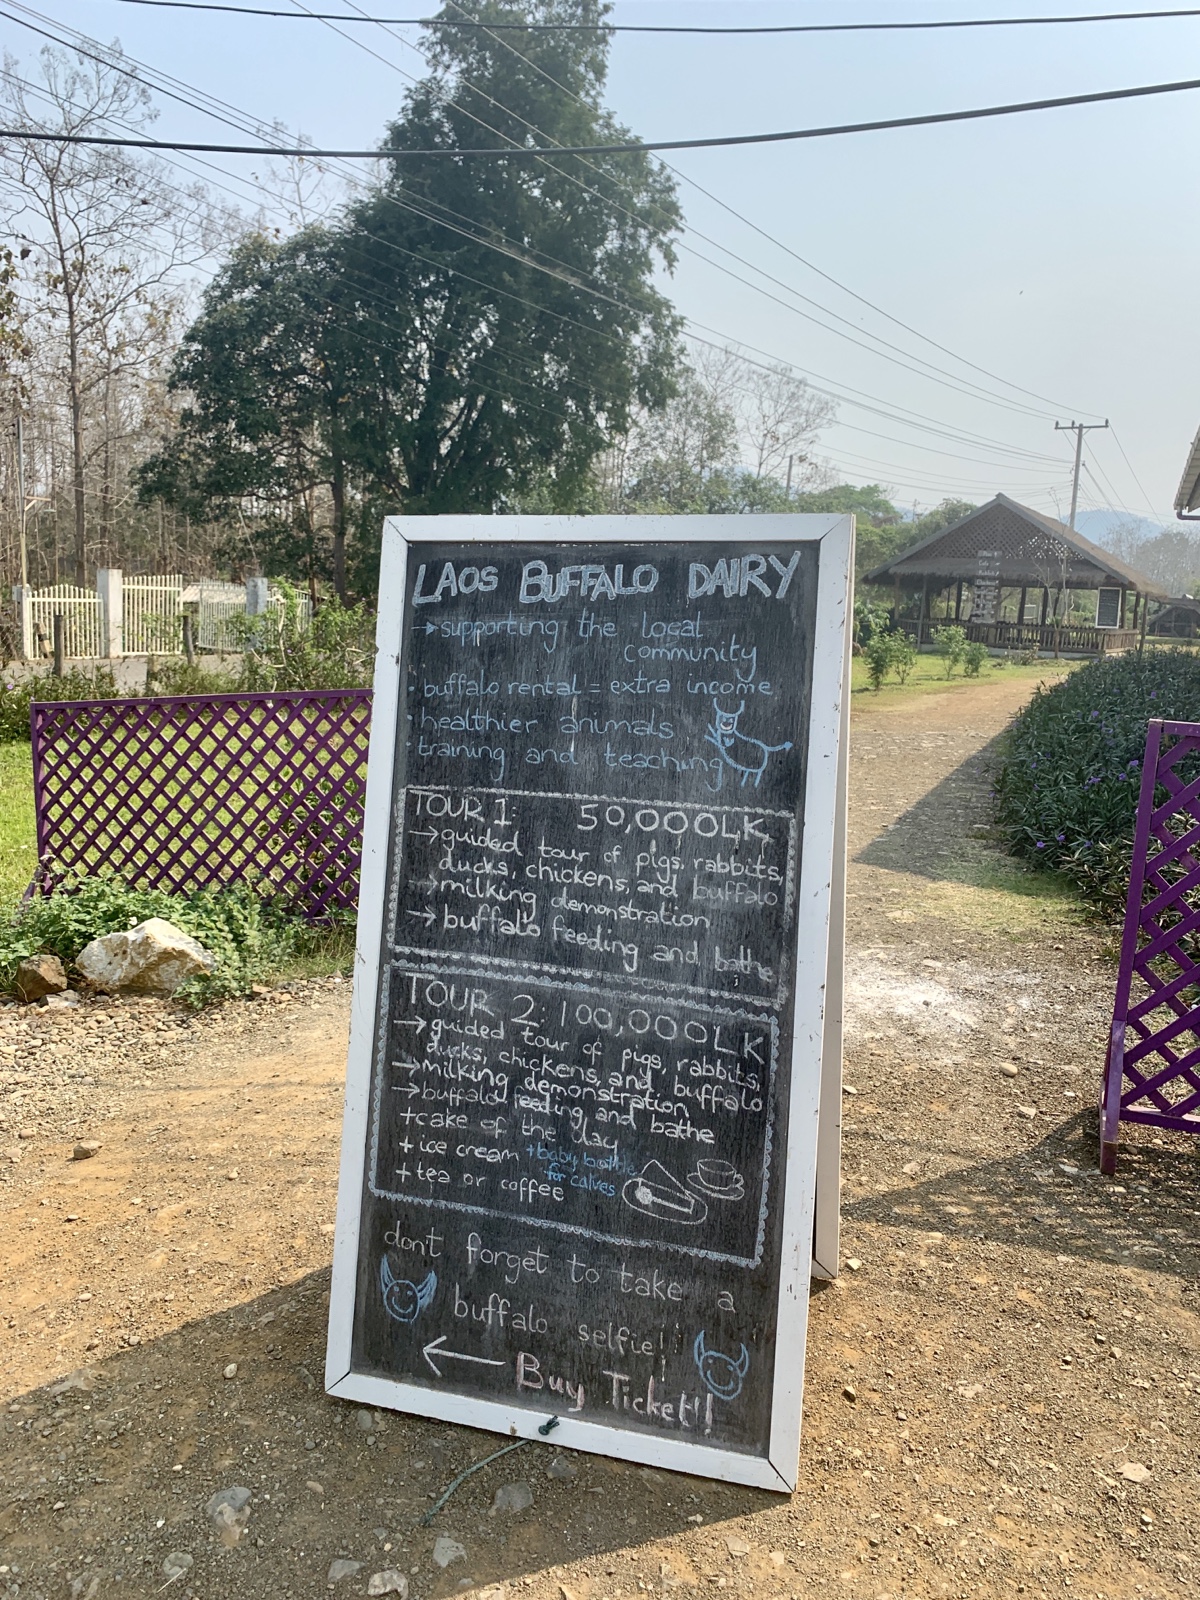 LAOS BUFFALO DAIRY
→supporting the local
community
· buffalo rental = extra income
· healthier animals
· training and teaching
TOUR 1: 50,000LK
→guided tour of pigs, rabbits,
ducks, chickens, and buffalo
→milking demonstration
→buffalo feeding and bathe
TOUR 2: 100,000LK
→guided tour of pigs, rabbits,
ducks, chickens, and buffalo
→milking demonstration
→buffalo feeding and bathe
+cake of the day
+ice cream +baby bottle
for calves
+tea or coffee
dont forget to take a
buffalo selfie!!
← Buy Ticket!!